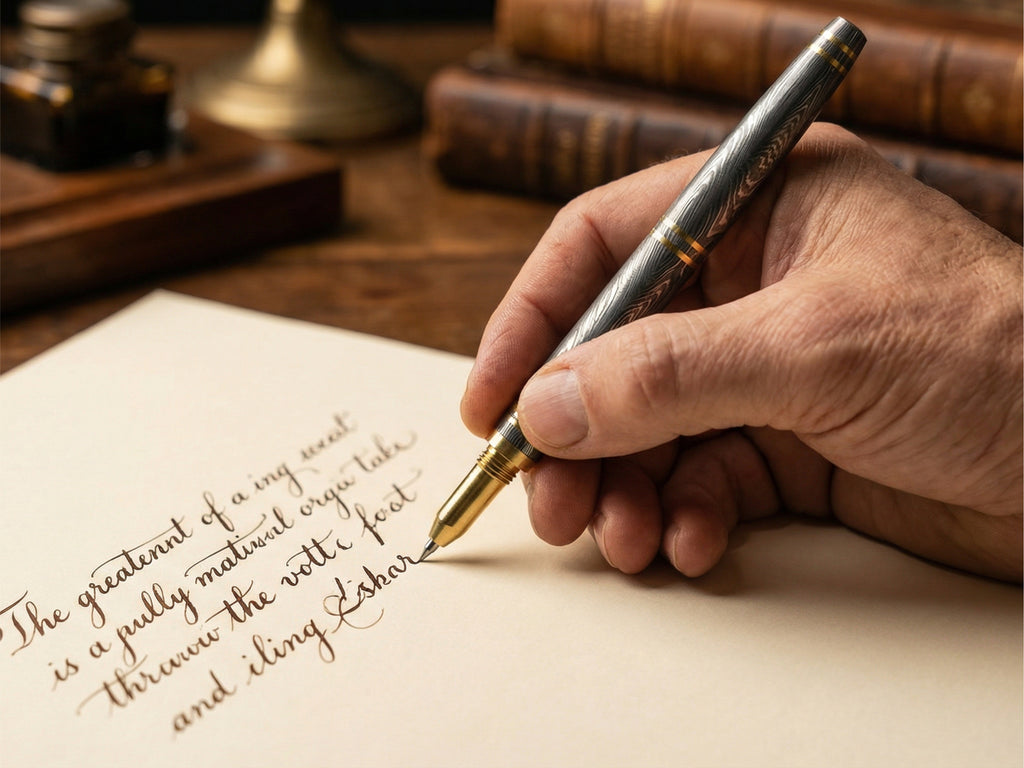 The greatennt of a ing weat
is a pully matinal orgu take
thrwww the vott foot
and iling Eshar